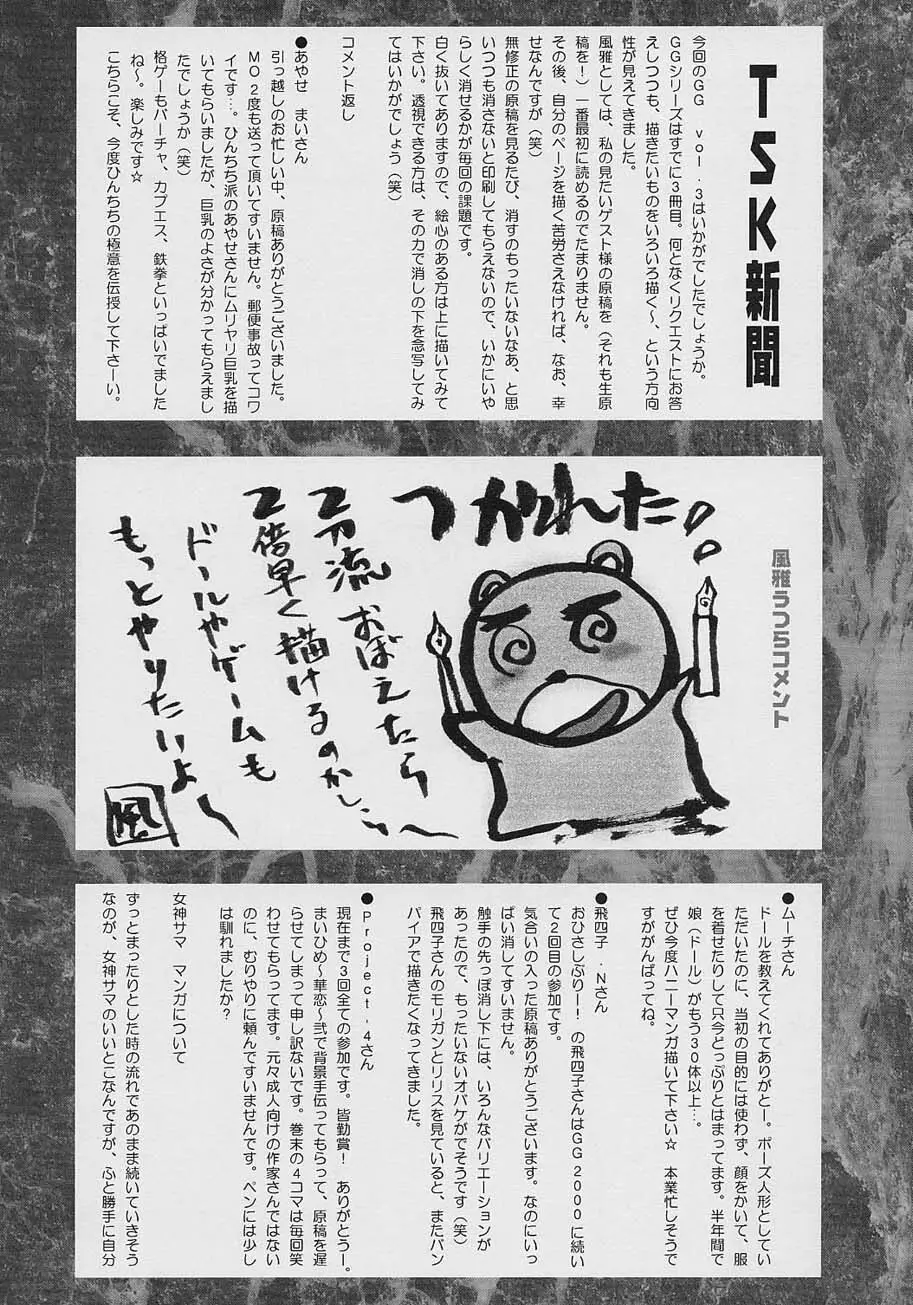 TSK新聞
今回のGG vol.3はいかがでしたでしょうか。
GGシリーズはすでに3冊目。何となくリクエストにお答
えしつつも、描きたいものをいろいろ描く～、という方向
性が見えてきました。
風雅としては、私の見たいゲスト様の原稿を(それも生原
稿を!)一番最初に読めるのでたまりません。
その後、自分のページを描く苦労さえなければ、なお、幸
せなんですが(笑)
無修正の原稿を見るたび、消すのもったいないなあ、と思
いつつも消さないと印刷してもらえないので、いかにいや
らしく消せるかが毎回の課題です。
白く抜いてありますので、絵心のある方は上に描いてみて
下さい。透視できる方は、その力で消しの下を念写してみ
てはいかがでしょう(笑)
コメント返し
●あやせ まいさん
引っ越しのお忙しい中、原稿ありがとうございました。
MO2度も送って頂いてすいません。郵便事故ってコワ
イです…。ひんちち派のあやせさんにムリヤリ巨乳を描
いてもらいましたが、巨乳のよさが分かってもらえまし
たでしょうか(笑)
格ゲーもバーチャ、カプエス、鉄拳といっぱいでました
ね～。楽しみです☆
こちらこそ、今度ひんちちの極意を伝授して下さーい。
風雅うつらコメント
つかれた
2刀流おぼえたら
2倍早く描けるのかしら～
ドールやゲームも
もっとやりたいよ～
風
●ムーチさん
ドールを教えてくれてありがとー。ポーズ人形としてい
ただいたのに、当初の目的には使わず、顔をかいて、服
を着せたりして只今どっぷりとはまってます。半年間で
娘(ドール)がもう30体以上…。
ぜひ今度ハニーマンガ描いて下さい☆ 本業忙しそうで
すががんばってね。
●飛四子・Nさん
おひさしぶりー!の飛四子さんはGG2000に続い
て2回目の参加です。
気合いの入った原稿ありがとうございます。なのにいっ
ぱい消してすいません。
触手の先っぽ消し下には、いろんなバリエーションが
あったので、もったいないオバケがでそうです(笑)
飛四子さんのモリガンとリリスを見ていると、またバン
パイアで描きたくなってきました。
●Project-4さん
現在まで3回全ての参加です。皆勤賞! ありがとうー。
まいひめ～華恋～弐で背景手伝ってもらって、原稿を遅
らせてしまって申し訳ないです。巻末の4コマは毎回笑
わせてもらってます。元々成人向けの作家さんではない
のに、むりやりに頼んですいませんです。ペンには少し
は馴れましたか?
女神サマ マンガについて
ずっとまったりとした時の流れであのまま続いていきそう
なのが、女神サマのいいとこなんですが、ふと勝手に自分